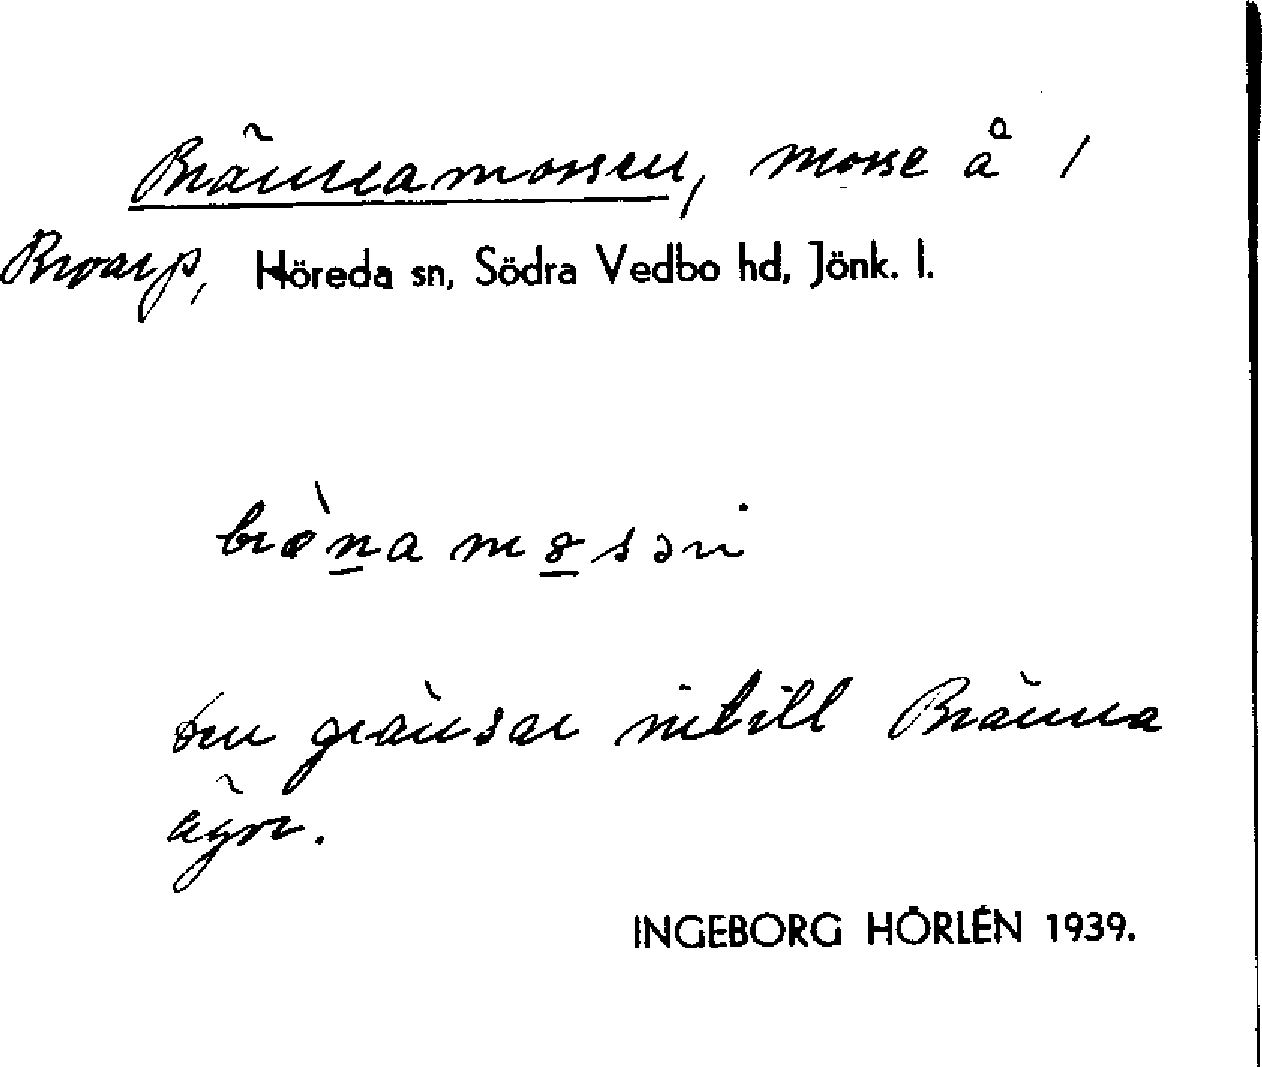 Brännamossen, mosse å 1
Broarp, Höreda sn, Södra Vedbo hd, Jönk. l.
bræ̀n̲a mo̲sən
den gränsar intill Bränna
ägor.
INGEBORG HÖRLÉN 1939.